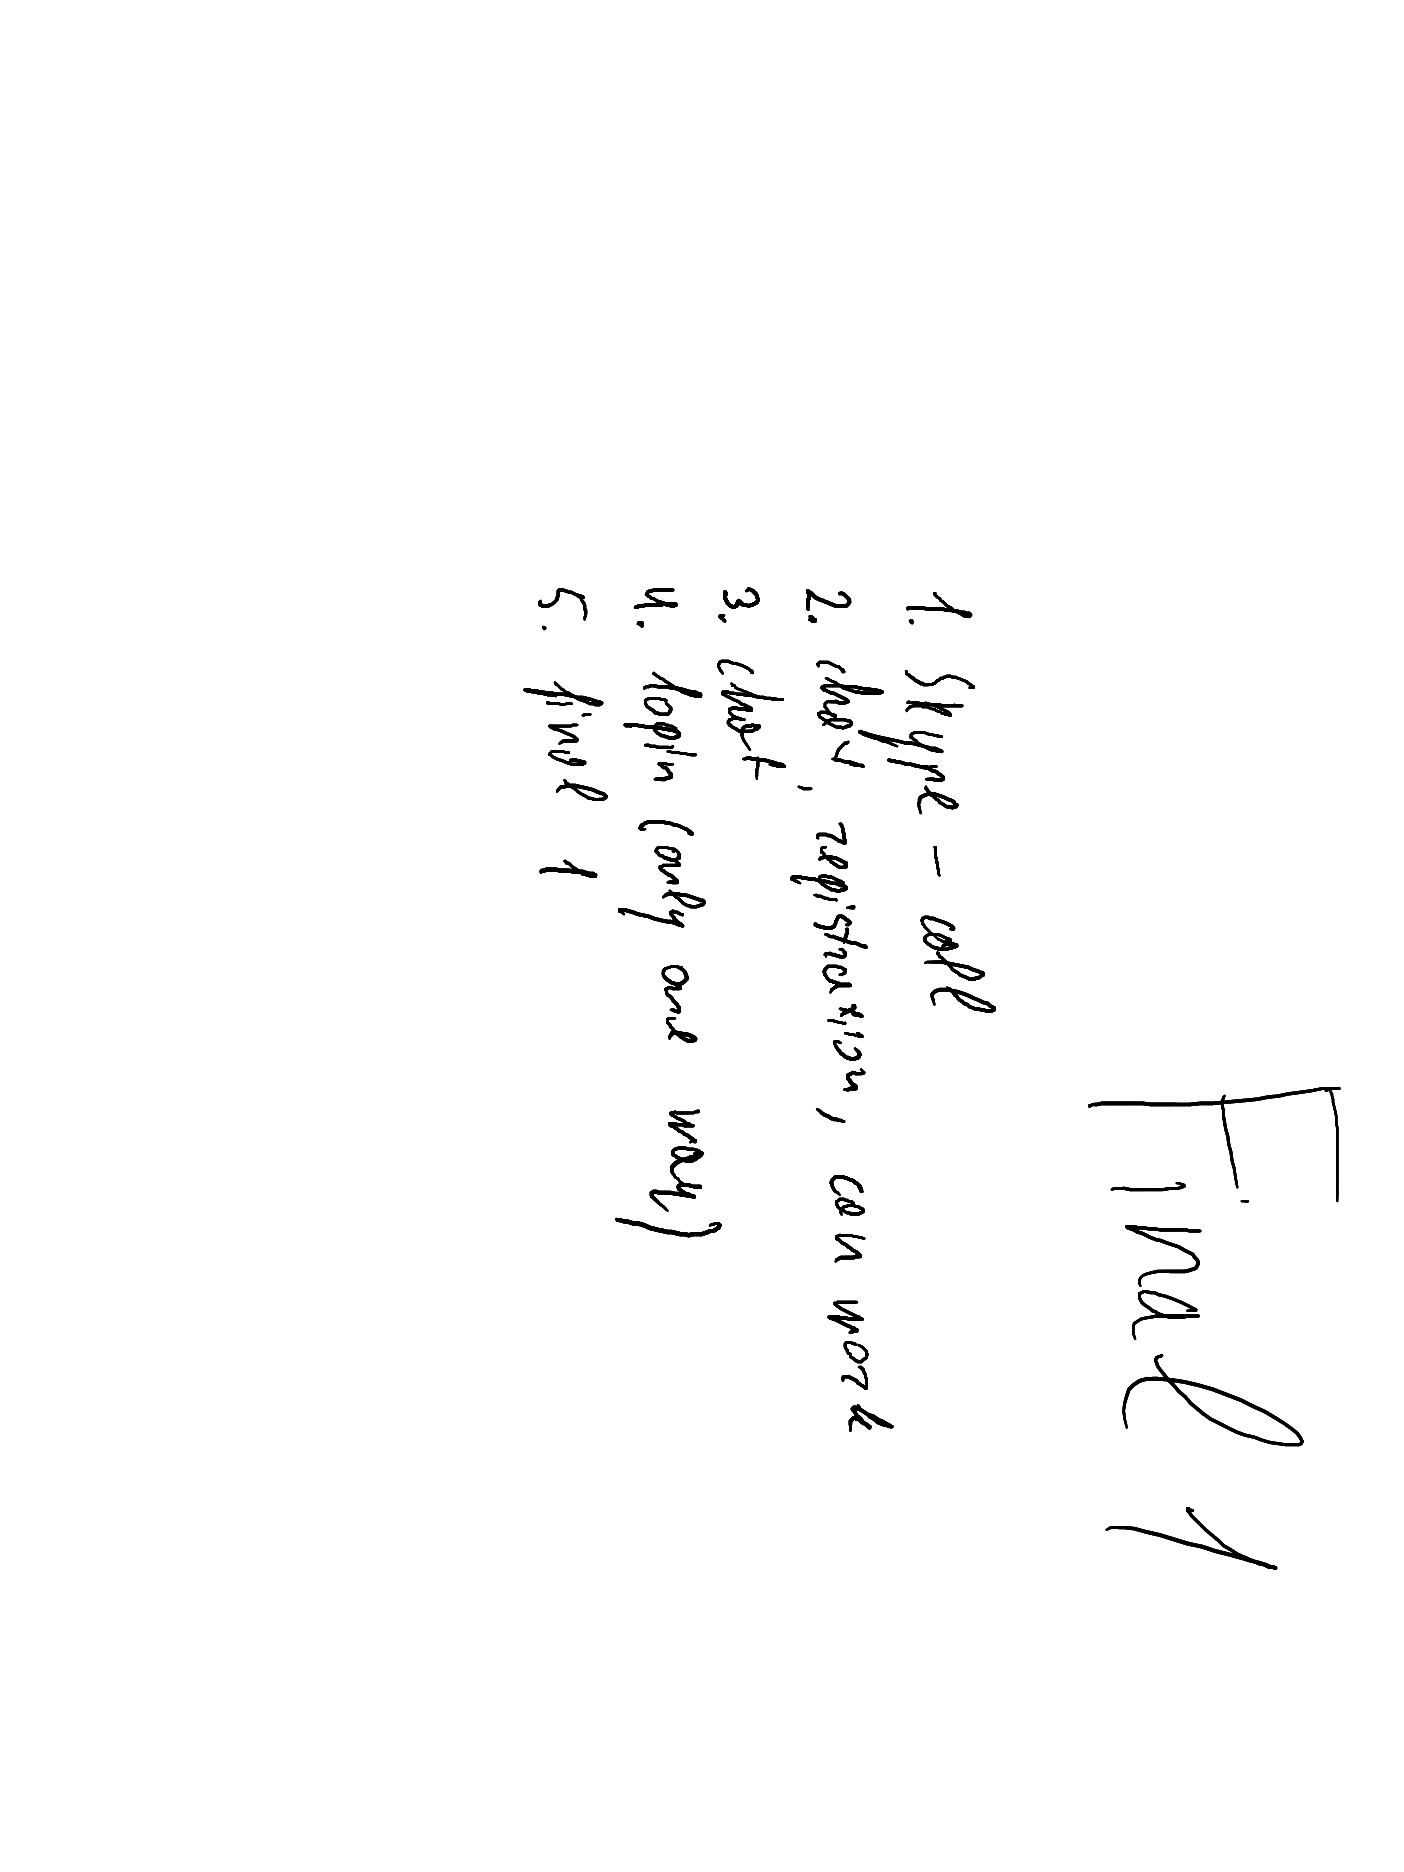 Final 1
1. Skype - call
2. chat, registration, can work
3. chat
4. login (only one way)
5. final 1